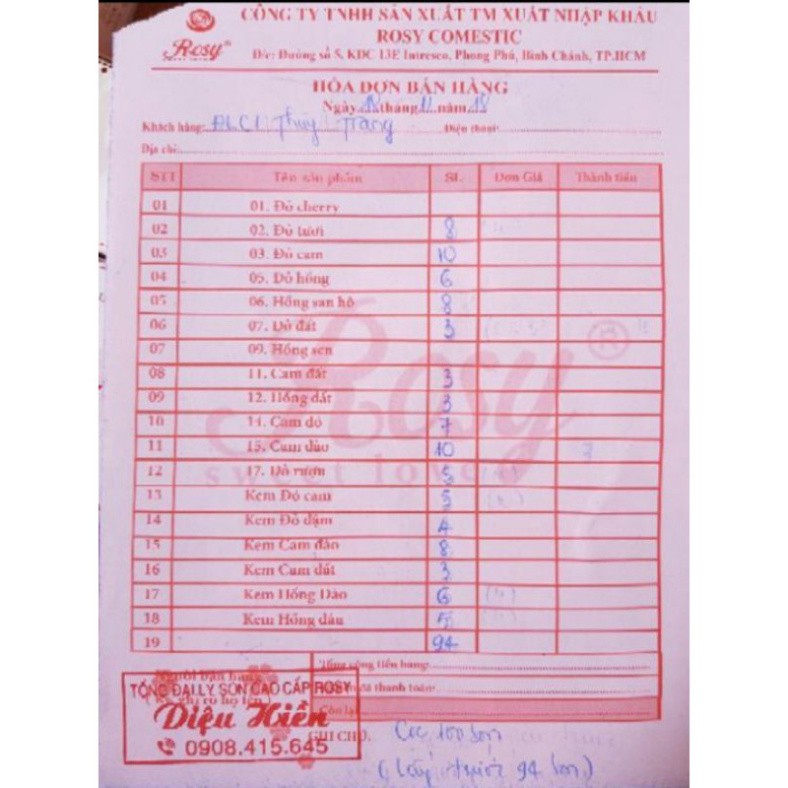 CÔNG TY TNHH SẢN XUẤT TM XUẤT NHẬP KHẨU
Rosy® ROSY COMESTIC
Đ/c: Đường số 5, KDC 13E Intresco, Phong Phú, Bình Chánh, TP.HCM
HÓA ĐƠN BÁN HÀNG
Ngày 18 tháng 11 năm 18
Khách hàng: ĐLC1 Thùy Trang Điện thoại:
Địa chỉ:
STT Tên sản phẩm SL Đơn Giá Thành tiền
01 01. Đỏ cherry
02 02. Đỏ tươi 8
03 03. Đỏ cam 10
04 05. Đỏ hồng 6
05 06. Hồng san hô 8
06 07. Đỏ đất 3
07 09. Hồng sen
08 11. Cam đất 3
09 12. Hồng đất 3
10 14. Cam đỏ 7
11 15. Cam đào 10
12 17. Đỏ rượu 5
13 Kem Đỏ cam 5
14 Kem Đỏ đậm 4
15 Kem Cam đào 8
16 Kem Cam đất 3
17 Kem Hồng Đào 6
18 Kem Hồng dâu 5
19 94
Rosy ®
sweet love
Tổng cộng tiền hàng:
Người bán hàng
đã thanh toán:
Còn lại
TỔNG ĐẠI LÝ SON CAO CẤP ROSY
Diệu Hiền
0908.415.645
GHI CHÚ: Cọc 100 son
(Lấy trước 94 son)